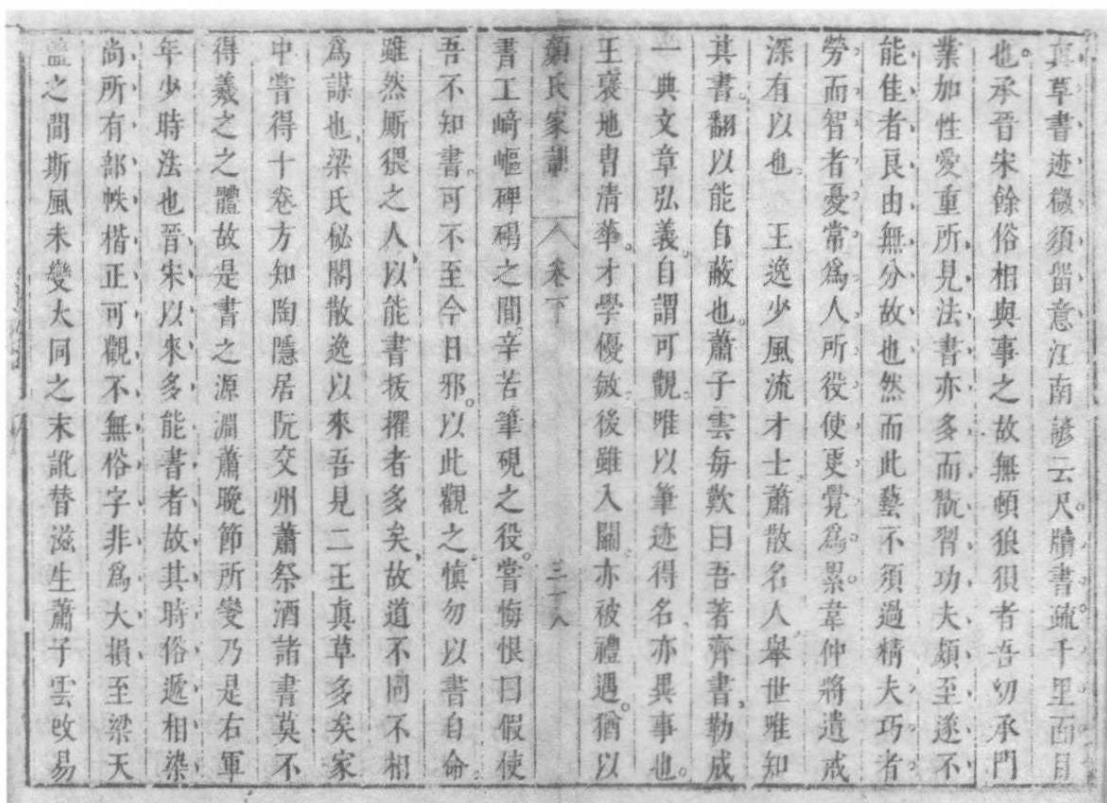 真草書迹微須留意江南諺云尺牘書疏千里面目
也。承晉宋餘俗相與事之故無頓狼狽者吾幼承門
業加性愛重所見法書亦多而翫習功夫頗至遂不
能佳者良由無分故也然而此藝不須過精夫巧者
勞而智者憂常爲人所役使更覺爲累韋仲將遺戒
深有以也 王逸少風流才士蕭散名人舉世唯知
其書。翻以能自蔽也。蕭子雲每歎曰吾著齊書、勒成
一典文章弘義。自謂可觀唯以筆迹得名亦異事也。
王褒地胄清華。才學優敏後雖入關亦被禮遇。猶以
顏氏家訓 卷下 三十八
書工崎嶇碑碣之間。辛苦筆硯之役。嘗悔恨曰假使
吾不知書。可不至今日邪。以此觀之、慎勿以書自命。
雖然厮猥之人、以能書拔擢者多矣、故道不同不相
爲謀也、梁氏秘閣散逸以來吾見二王眞草多矣家
中嘗得十卷方知陶隱居阮交州蕭祭酒諸書莫不
得羲之之體故是書之源淵蕭晚節所變乃是右軍
年少時法也晉宋以來多能書者故其時俗遞相染
尚所有部帙楷正可觀不無俗字非爲大損至梁天
監之間斯風未變大同之末訛替滋生蕭子雲改易